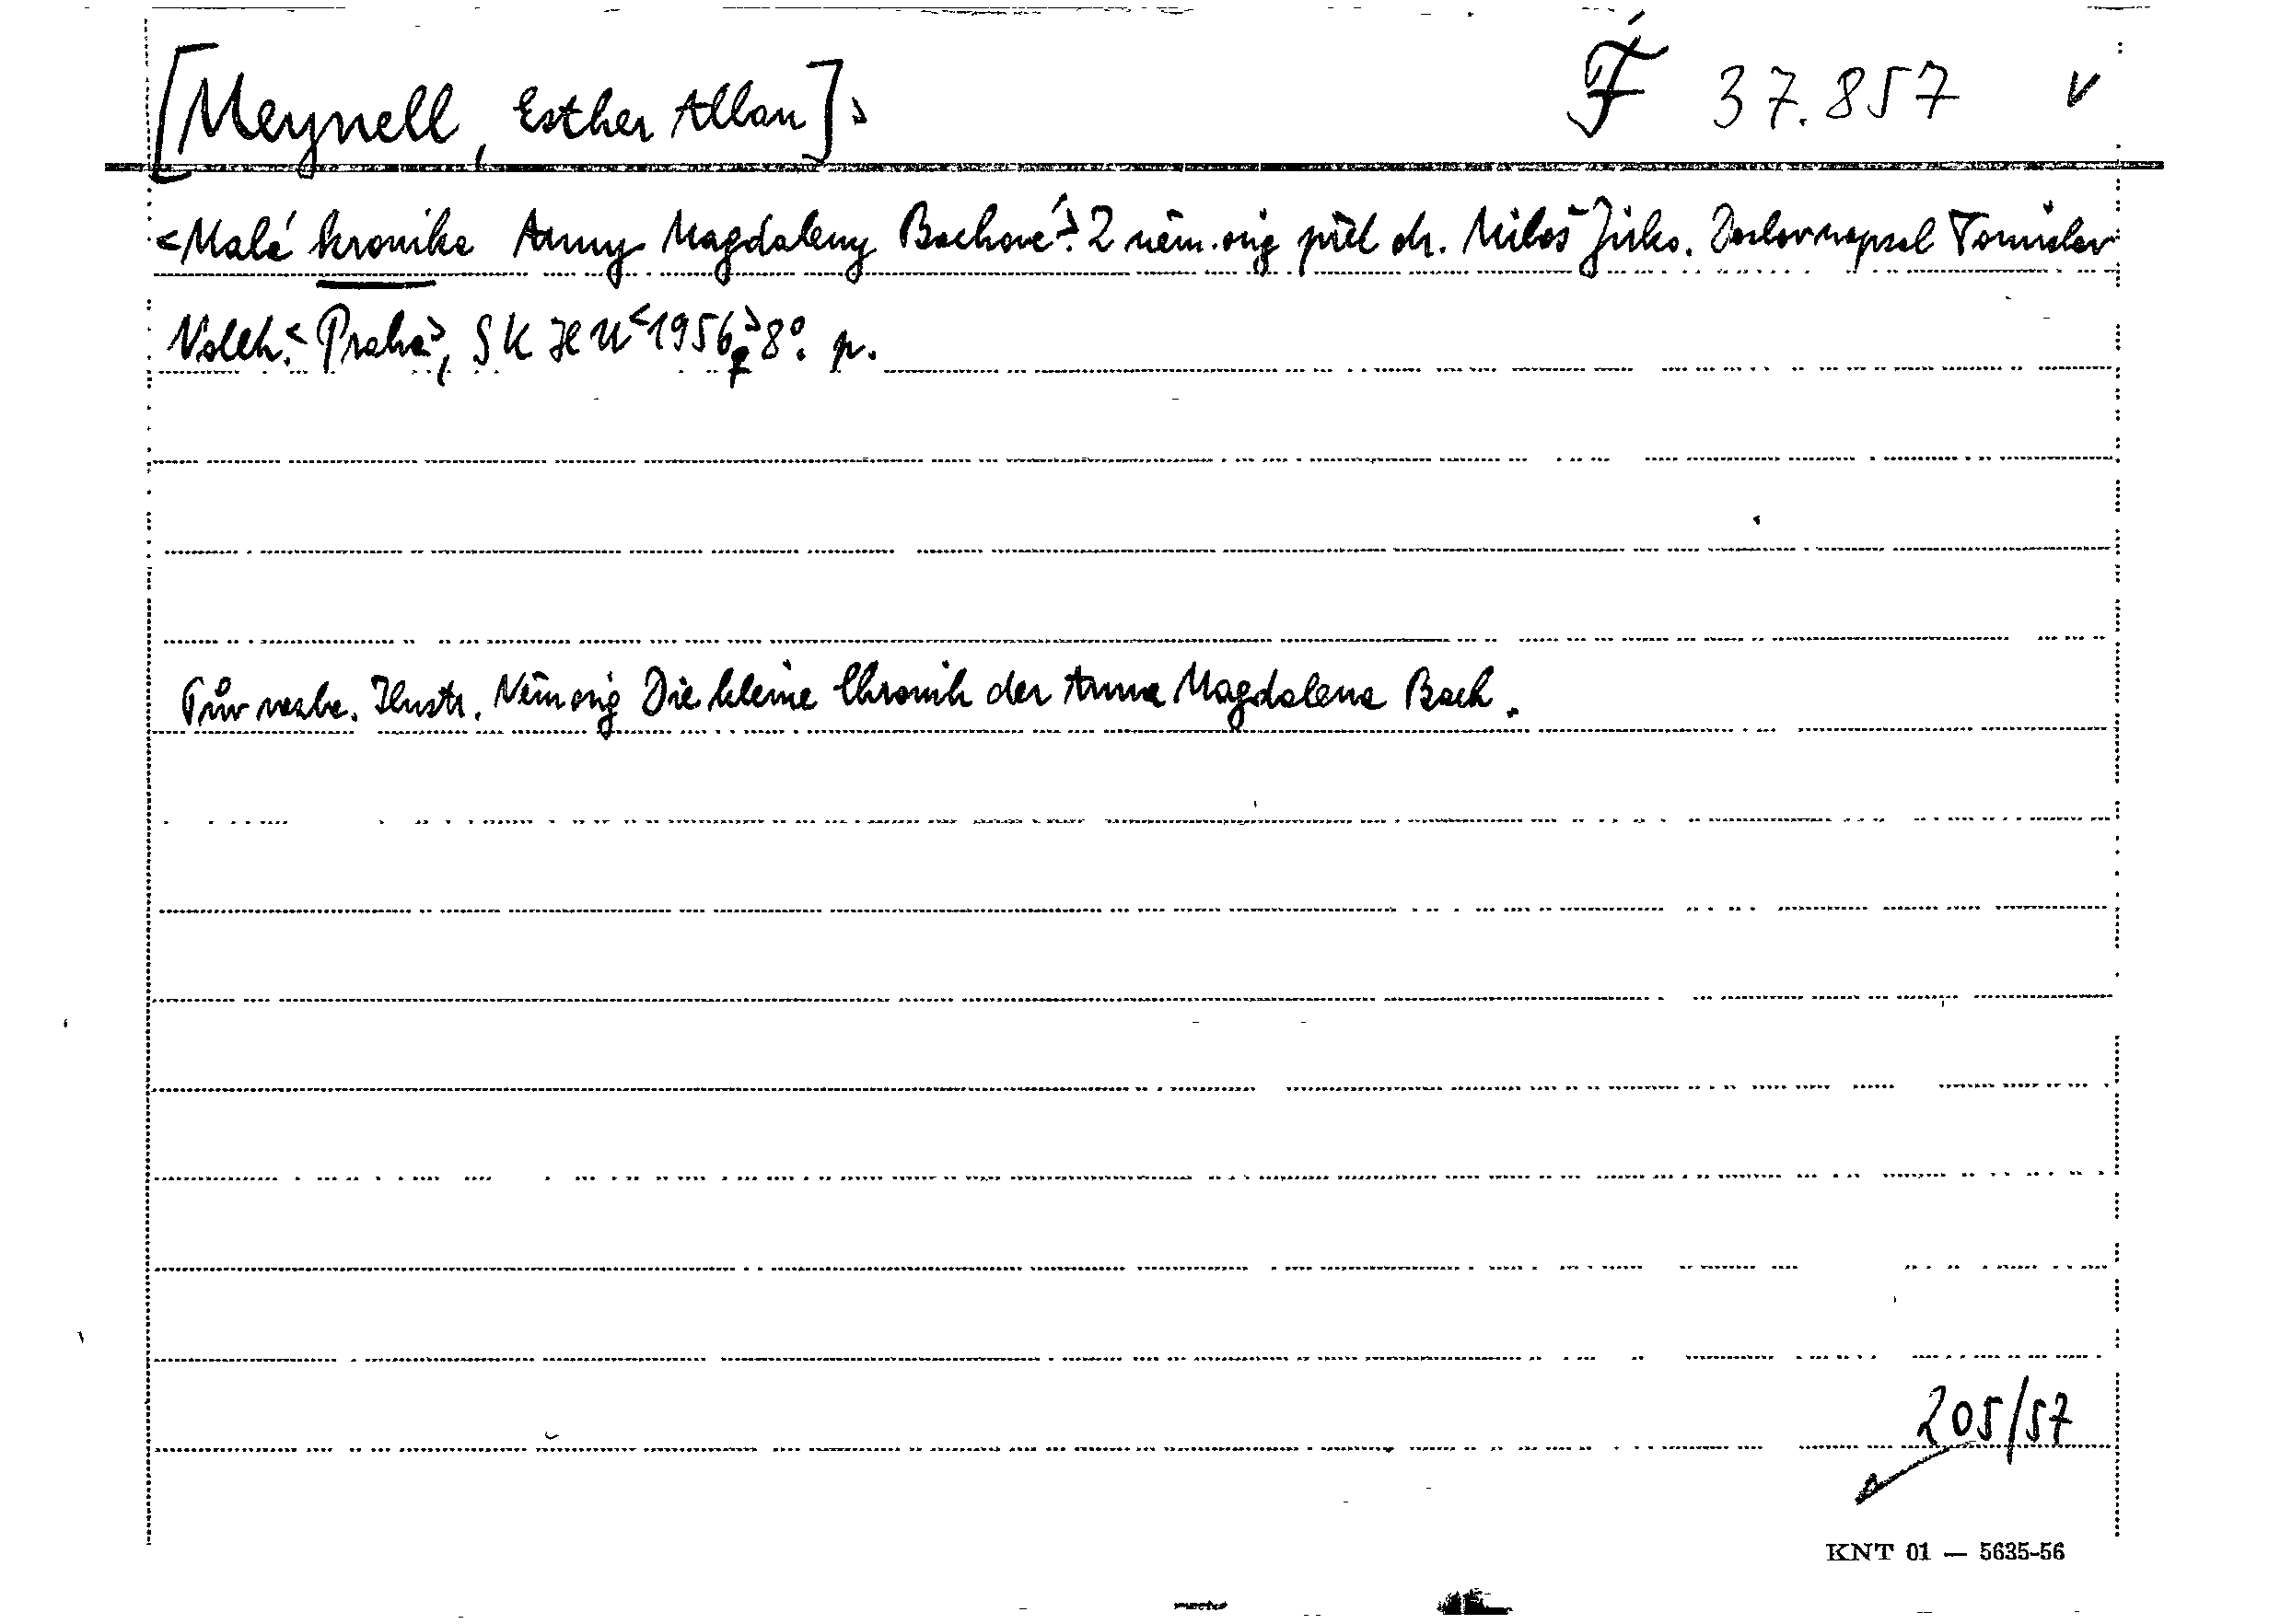 [Meynell, Esther Allan]> F 37.857 v
<Malá kronika Anny Magdaleny Bachové>. Z něm. orig přel dr. Miloš Jirko. Doslov napsal Tomislav
Volek. <Praha>, SKHU <1956>, 8°. p.
Pův vazba. Ilustr. Něm orig Die kleine Chronik der Anna Magdalena Bach.
205/57
KNT 01 — 5635-56